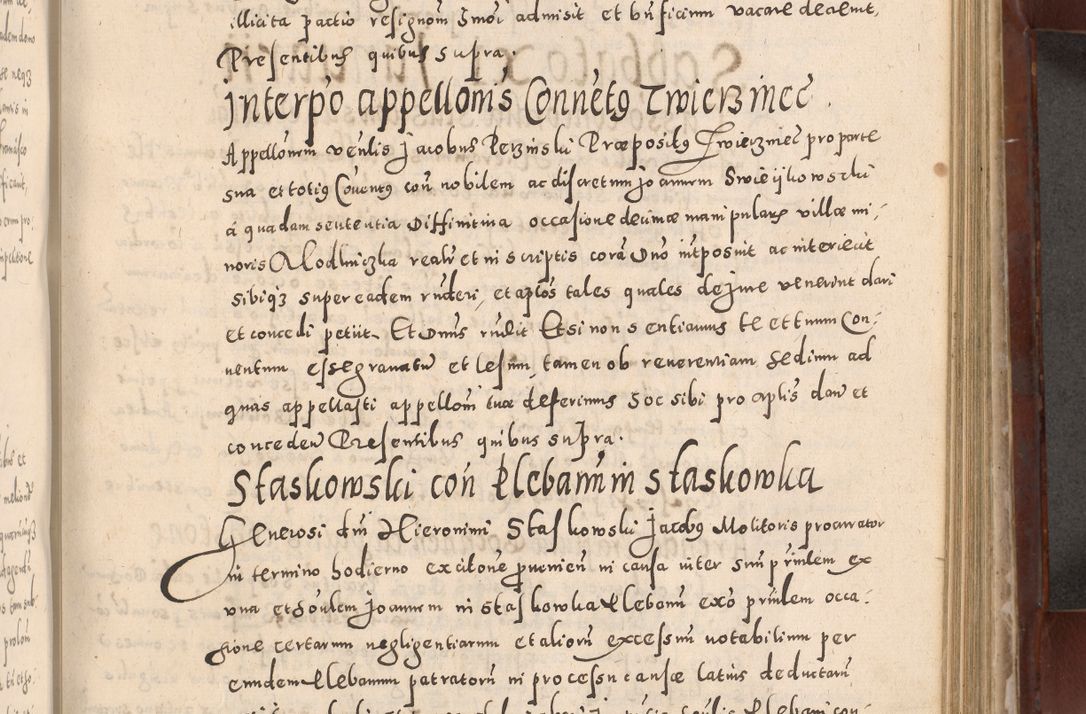 illicita pactio resignom̃ Smoi admisit et bñficium vacare decrevit,
Presentibus quibus supra.
Interpo appellonis Convētq Zwierzinecē.
Appellonem venlis Jacobus Rerzinski Præpositq Zwierzineñ pro parte
sua et totiq Coventq con nobilem ac discretum Joannem Swieijkowski
a quadam sententia diffinitiva occasione decimæ manipularx villæ mi-
noris Modlniczka realr et in scriptis corā Dnō int̃posuit ac interiecit
sibiqz super eadem rn̄deri, et aplos tales quales de jure venerint dari
et concedi petiit. Et Dnus rn̄dit Etsi non sentiamus te et tuum Con-
ventum esse gravatū et lesum, tamen ob reverentiam sedium ad
quas appellasti appellom̃ tuæ deferimus hoc sibi pro aplis darī et
concederī Presentibus quibus supra.
Staskowski con Plebanum in Staskowka
Generosi dñi Hieronimi Staskowski Jacobq Molitoris procurator
in termino hodierno ex citone proveniēn in causa inter Suū prinlem ex
una et honlem Joannem in Staskowka Plebanū exõ prinlem occa-
sione certarum negligentiarum et aliorū excessuum notabilium per
eundem Plebanum patratorū in processu causæ latius deductarū